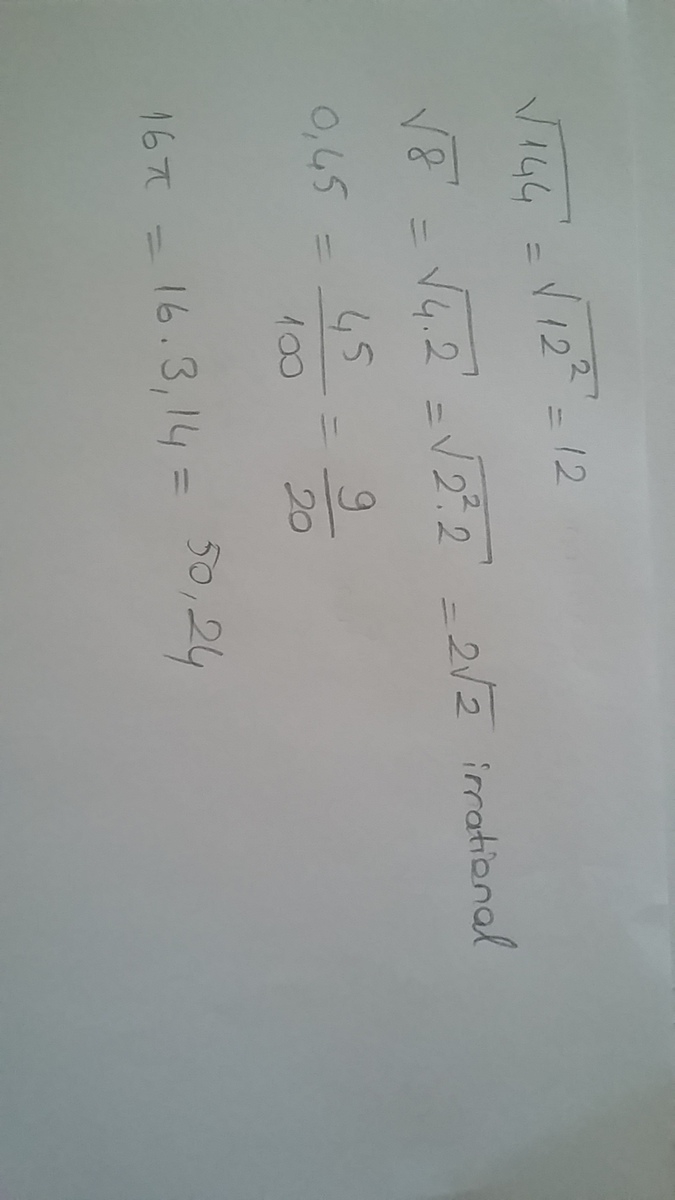 √144 = √12² = 12
√8 = √4.2 = √2².2 = 2√2 irrational
0,45 = 45/100 = 9/20
16π = 16.3,14 = 50,24